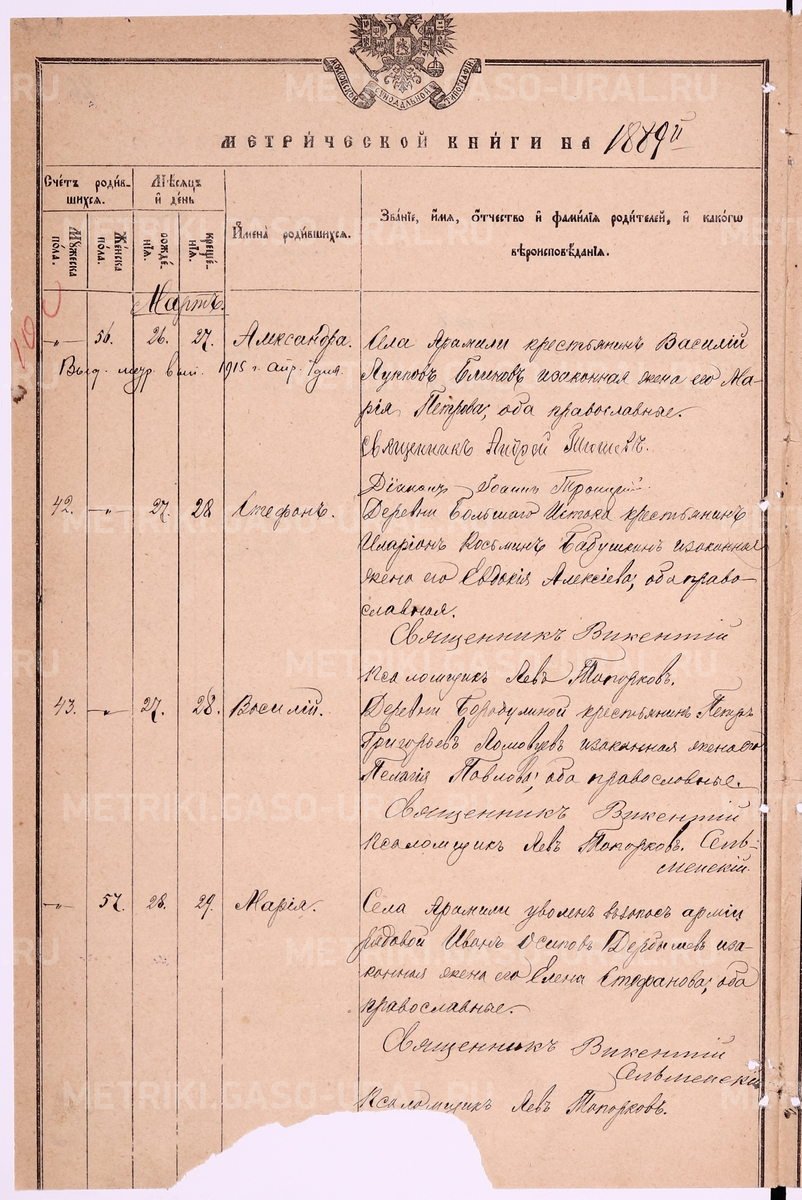 МОСКОВСКОЙ СИНОДАЛЬНОЙ ТИПОГРАФІИ
МЕТРИ́ЧЕСКОЙ КНИ́ГИ НА 1889й
Счéтъ роди́вшихся.
Мꙋ́жеска по́ла.
Же́нска по́ла.
Мѣ́сяцъ и де́нь
рожде́нїѧ.
креще́нїѧ.
И҆мена̀ роди́вшихся.
Зва́нїе, и҆́мѧ, ѻ҆́тчество и҆ фами́лїѧ роди́телей, и҆ како́гѡ
вѣроисповѣ́данїѧ.
Мартъ.
-"- 56. 26. 27. Александра. Села Арамили крестьянинъ Василій
Выд. 1915 г. апр. 1 дня.
Блиновъ и законная жена его Ма-
рія Петрова; оба православные.
Священникъ Андрей
Діаконъ Іоаннъ Троицкій
42. -"- 27. 28 Стефанъ. Деревни Большаго Истока крестьянинъ
Иларіонъ Косьминъ Бабушкинъ и законная
жена его Евдокія Алексіева; оба право-
славная.
Священникъ Викентій
Псаломщикъ Левъ Топорковъ.
43. -"- 27. 28. Василій. Деревни Бородулиной крестьянинъ Петръ
Григорьевъ Ломовцевъ и законная жена его
Пелагія Павлова; оба православные.
Священникъ Викентій
Псаломщикъ Левъ Топорковъ. Сель-
менскій.
-"- 57. 28. 29. Марія. Села Арамили уволен. въ запасъ арміи
рядовой Иванъ Осиповъ Дербышевъ и за-
конная жена его Елена Стефанова; оба
православные.
Священникъ Викентій
Сельменскій
Псаломщикъ Левъ Топорковъ.
METRIKI.GASO-URAL.RU